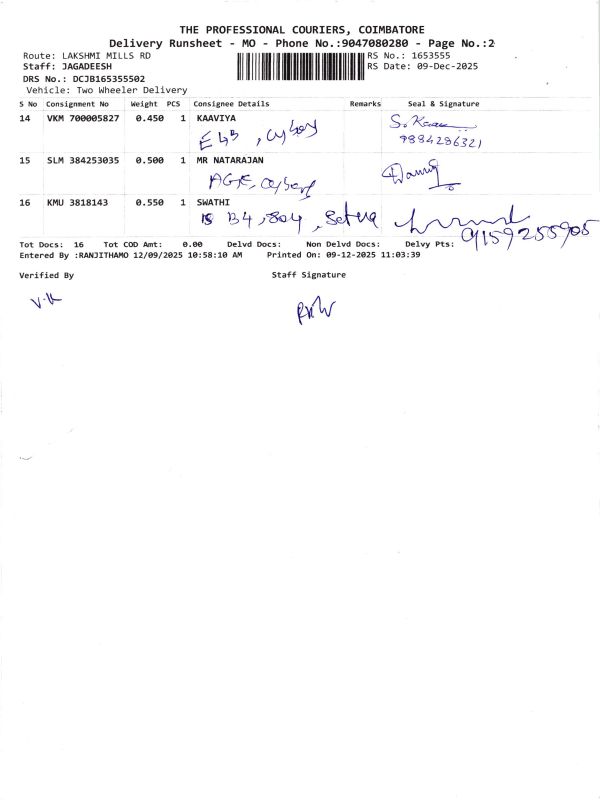 THE PROFESSIONAL COURIERS, COIMBATORE
Delivery Runsheet - MO - Phone No.:9047080280 - Page No.:2
Route: LAKSHMI MILLS RD RS No.: 1653555
Staff: JAGADEESH RS Date: 09-Dec-2025
DRS No.: DCJB165355502
Vehicle: Two Wheeler Delivery
S No Consignment No Weight PCS Consignee Details Remarks Seal & Signature
14 VKM 700005827 0.450 1 KAAVIYA
9884286321
15 SLM 384253035 0.500 1 MR NATARAJAN
16 KMU 3818143 0.550 1 SWATHI
B4, 804, 9159255905
Tot Docs: 16 Tot COD Amt: 0.00 Delvd Docs: Non Delvd Docs: Delvy Pts:
Entered By :RANJITHAMO 12/09/2025 10:58:10 AM Printed On: 09-12-2025 11:03:39
Verified By Staff Signature
V.K